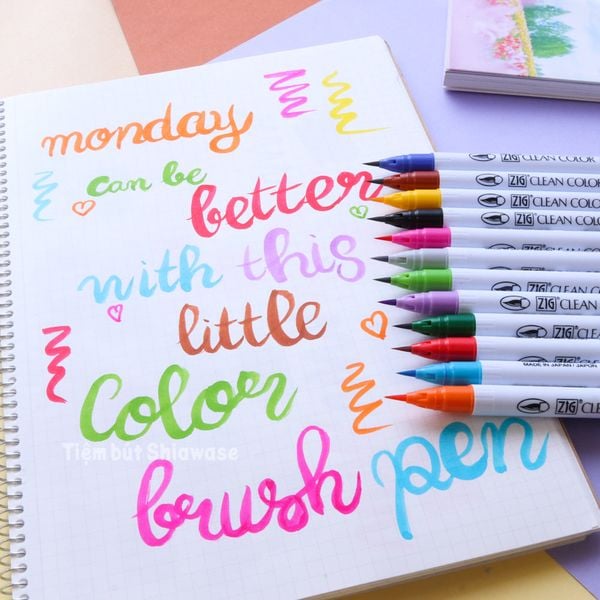 monday
can be
better
with this
little
Color
Tiệm bút Shiawase
brush pen
ZIG CLEAN COLOR
ZIG CLEAN COLOR
ZIG CLEAN COLO
ZIG CLEAN COLOR
ZIG CLEAN COL
ZIG CLEAN
ZIG CLEAN COLO
MADE IN JAPAN / JAPON
ZIG CLEAN COLO